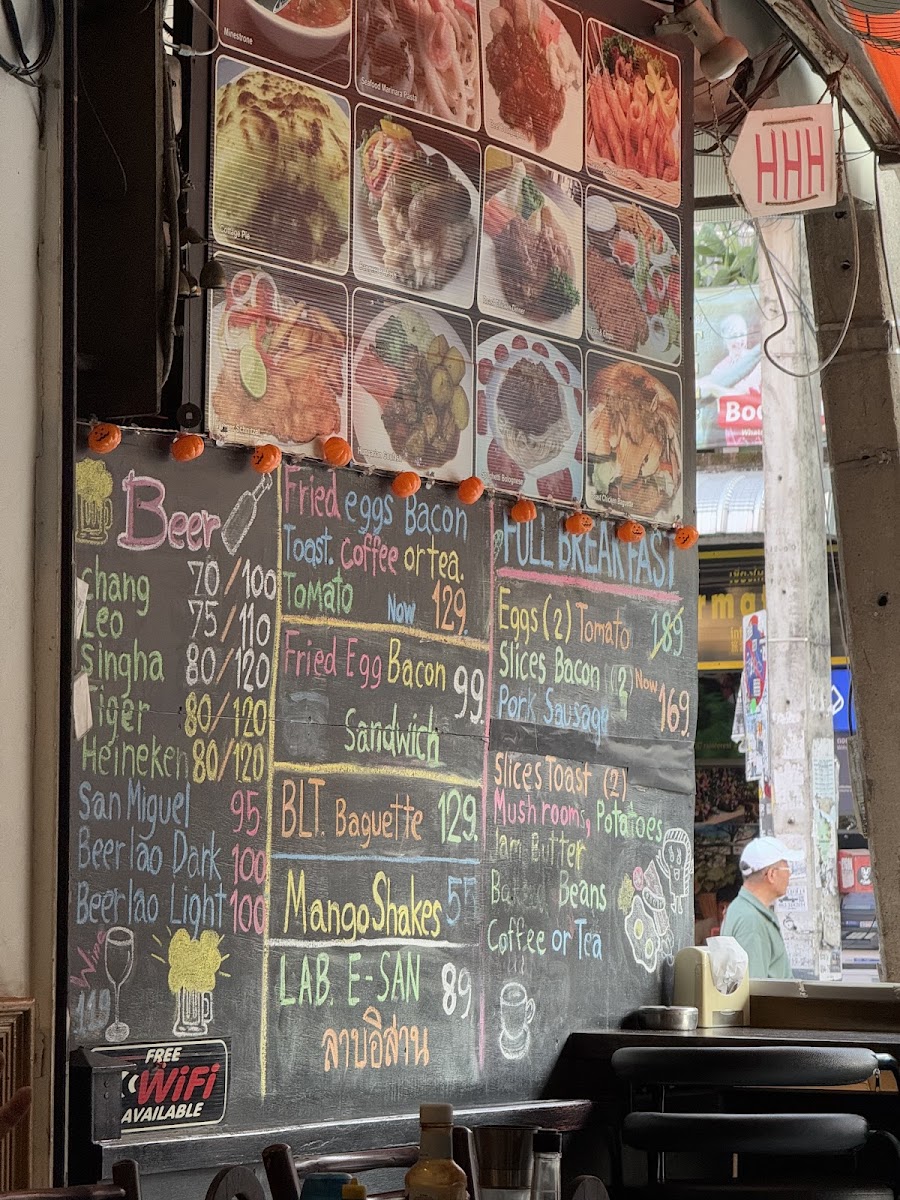 Minestrone
Seafood Marinara Pasta
Cottage Pie
Schnitzel
Spaghetti Bolognese
Roast Chicken Baguette
HHH
Boo
Beer
Chang 70/100
Leo 75/110
Singha 80/120
Tiger 80/120
Heineken 80/120
San Miguel 95
Beerlao Dark 100
Beerlao Light 100
Wine
FREE
WiFi
AVAILABLE
Fried eggs Bacon
Toast. Coffee or tea.
Tomato Now 129.
Fried Egg Bacon 99
Sandwich
BLT. Baguette 129.
Mango Shakes 55
LAB. E-SAN 89
ลาบอีสาน
FULL BREAKFAST
Eggs (2) Tomato 189
Slices Bacon (2 Now
Pork Sausage 169
Slices Toast (2)
Mushrooms, Potatoes
Jam Butter
Beans
Coffee or Tea